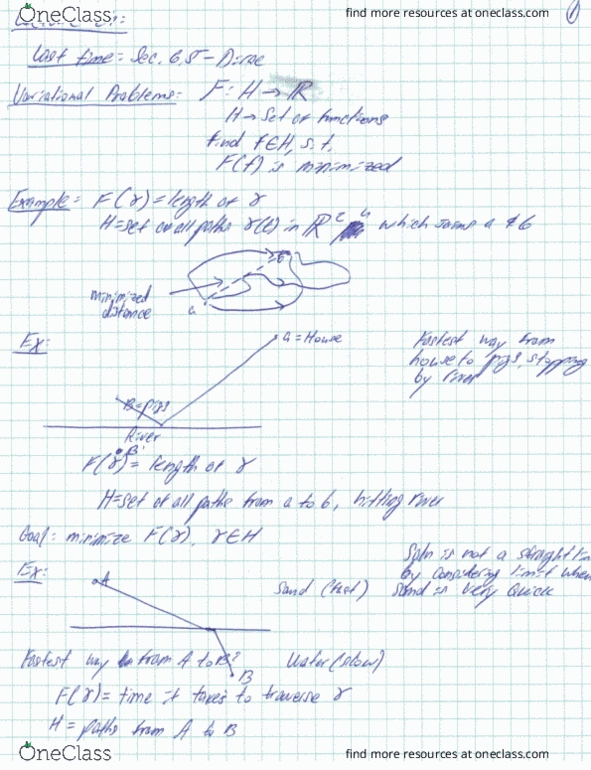 OneClass
find more resources at oneclass.com
1
Last time = Sec. 6.5 -
Variational Problems = F: H → ℝ
H → Set of functions
find f∈H, s.t.
F(f) is minimized
Example = F(γ) = length of γ
H = set of all paths γ(t) in ℝ² which joins a & b
minimized
distance
a
b
Ex:
a = House
Fastest way from
house to pigs, stopping
by river
B = pigs
River
B'
F(γ) = length of γ
H = set of all paths from a to b, hitting river
Goal: minimize F(γ), γ∈H
Soln is not a straight lin
by considering limit when
Sand is very quick
Ex:
A
Sand (fast)
Fastest way from A to B?
Water (slow)
B
F(γ) = time it takes to traverse γ
H = paths from A to B
OneClass
find more resources at oneclass.com